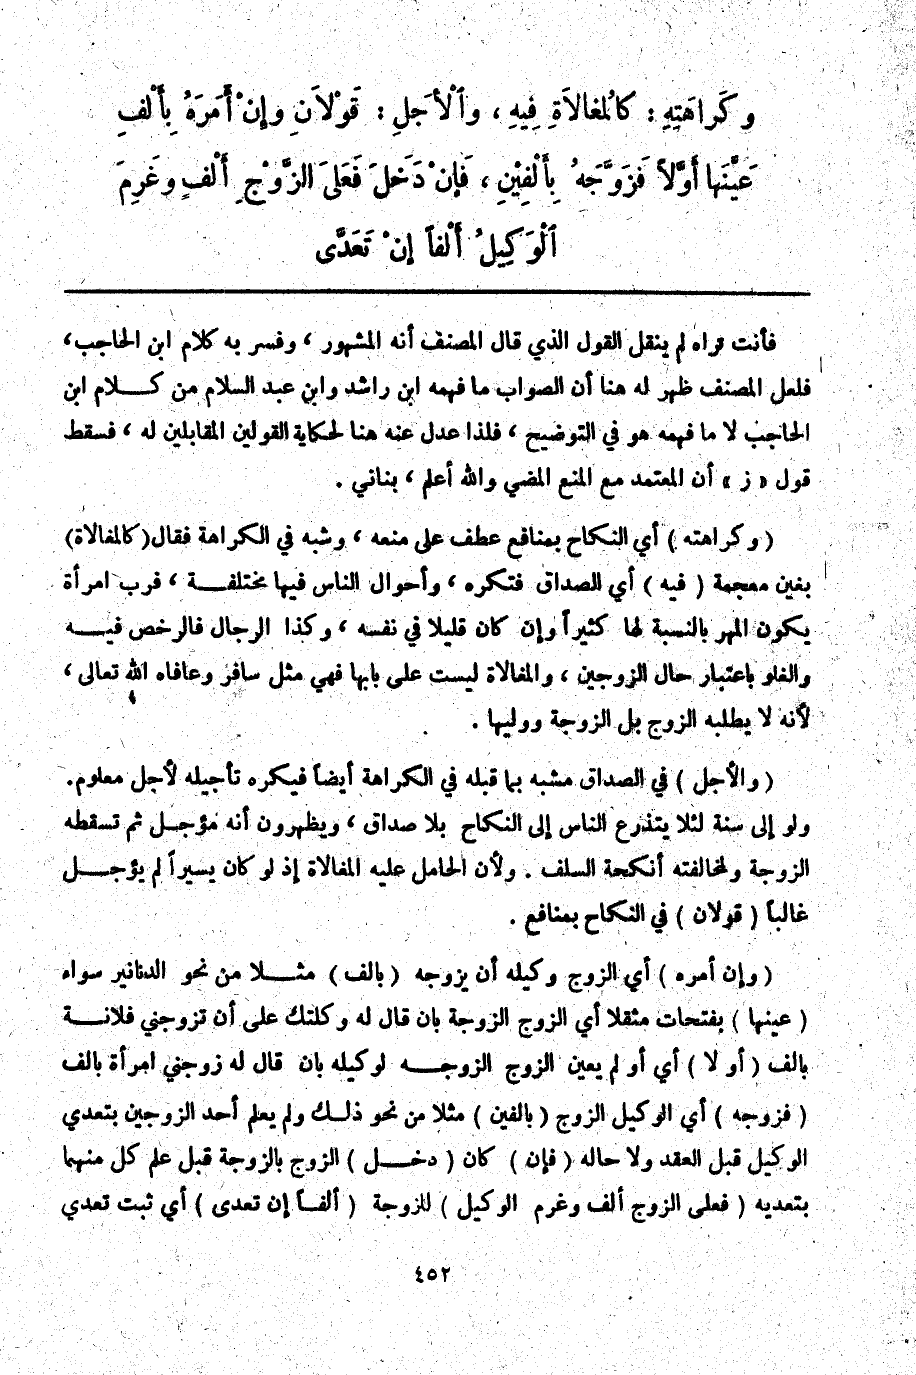 وكَراهَتِهِ : كالمُغالاَةِ فِيهِ ، وٱلْأَجَلِ : قَوْلاَنِ وإنْ أَمَرَهُ بِأَلْفٍ
عَيَّنَها أَوَّلاً فَزَوَّجَهُ بِأَلْفَيْنِ ، فَإنْ دَخَلَ فَعَلَى الزَّوْجِ أَلْفٍ وغَرِمَ
ٱلْوَكِيلُ أَلْفاً إنْ تَعَدَّى
فأنت تراه لم ينقل القول الذي قال المصنف أنه المشهور ، وفسر به كلام ابن الحاجب،
فلعل المصنف ظهر له هنا أن الصواب ما فهمه ابن راشد وابن عبد السلام من كـــلام ابن
الحاجب لا ما فهمه هو في التوضيح ، فلذا عدل عنه هنا لحكاية القولين المقابلين له ، فسقط
قول « ز » أن المعتمد مع المنع المضي والله أعلم ، بناني .
( وكراهته ) أي النكاح بمنافع عطف على منعه ، وشبه في الكراهة فقال ( كالمغالاة )
بغين معجمة ( فيه ) أي الصداق فتكره ، وأحوال الناس فيها مختلفــة ، فرب امرأة
يكون المهر بالنسبة لها كثيراً وإن كان قليلا في نفسه ، وكذا الرجال فالرخص فيـــه
والغلو باعتبار حال الزوجين ، والمغالاة ليست على بابها فهي مثل سافر وعافاه الله تعالى ،
لأنه لا يطلبه الزوج بل الزوجة ووليها .
( والأجل ) في الصداق مشبه بما قبله في الكراهة أيضاً فيكره تأجيله لأجل معلوم.
ولو إلى سنة لئلا يتذرع الناس إلى النكاح بلا صداق ، ويظهرون أنه مؤجــل ثم تسقطه
الزوجة ولمخالفته أنكحة السلف . ولأن الحامل عليه المغالاة إذ لو كان يسيراً لم يؤجــــل
غالباً ( قولان ) في النكاح بمنافع .
( وإن أمره ) أي الزوج وكيله أن يزوجه ( بالف ) مثـــلا من نحو الدنانير سواء
( عينها ) بفتحات مثقلا أي الزوج الزوجة بان قال له وكلتك على أن تزوجني فلانـــة
بالف ( أو لا ) أي أو لم يعين الزوج الزوجـــه لوكيله بان قال له زوجني امرأة بالف
( فزوجه ) أي الوكيل الزوج ( بالفين ) مثلا من نحو ذلـك ولم يعلم أحد الزوجين بتعدي
الوكيل قبل العقد ولا حاله ( فإن ) كان ( دخـــل ) الزوج بالزوجة قبل علم كل منهما
بتعديه ( فعلى الزوج ألف وغرم الوكيل ) للزوجة ( ألفـاً إن تعدى ) أي ثبت تعدي
٤٥٢